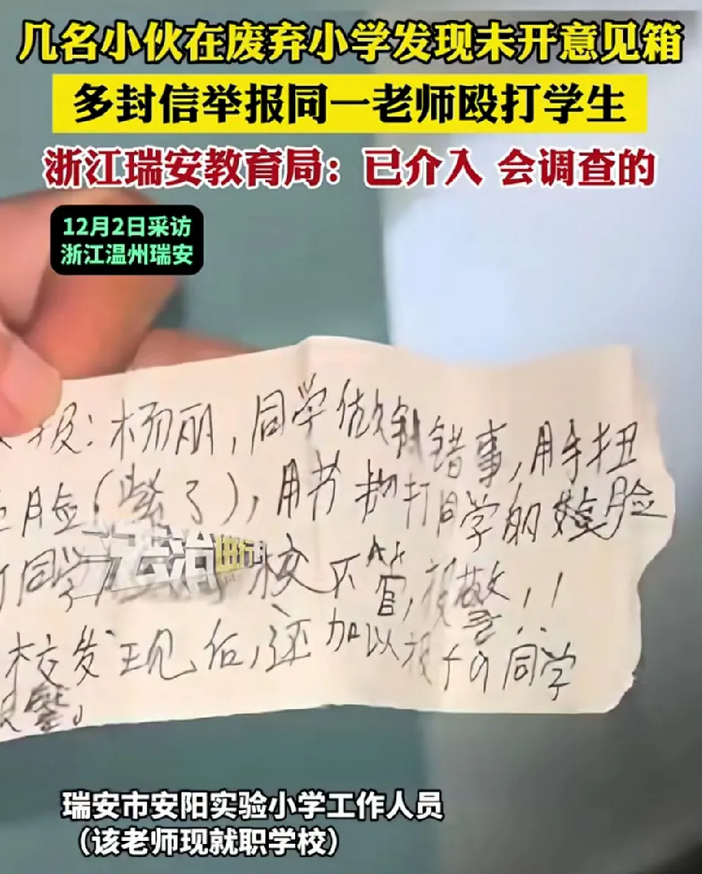 几名小伙在废弃小学发现未开意见箱
多封信举报同一老师殴打学生
浙江瑞安教育局：已介入 会调查的
12月2日采访
浙江温州瑞安
报：杨丽，同学做错事，用手扭
脸（紫了），用书打同学的脸
同学 校不管，报警！！
校发现后，还加以 同学
警。
法治
瑞安市安阳实验小学工作人员
（该老师现就职学校）